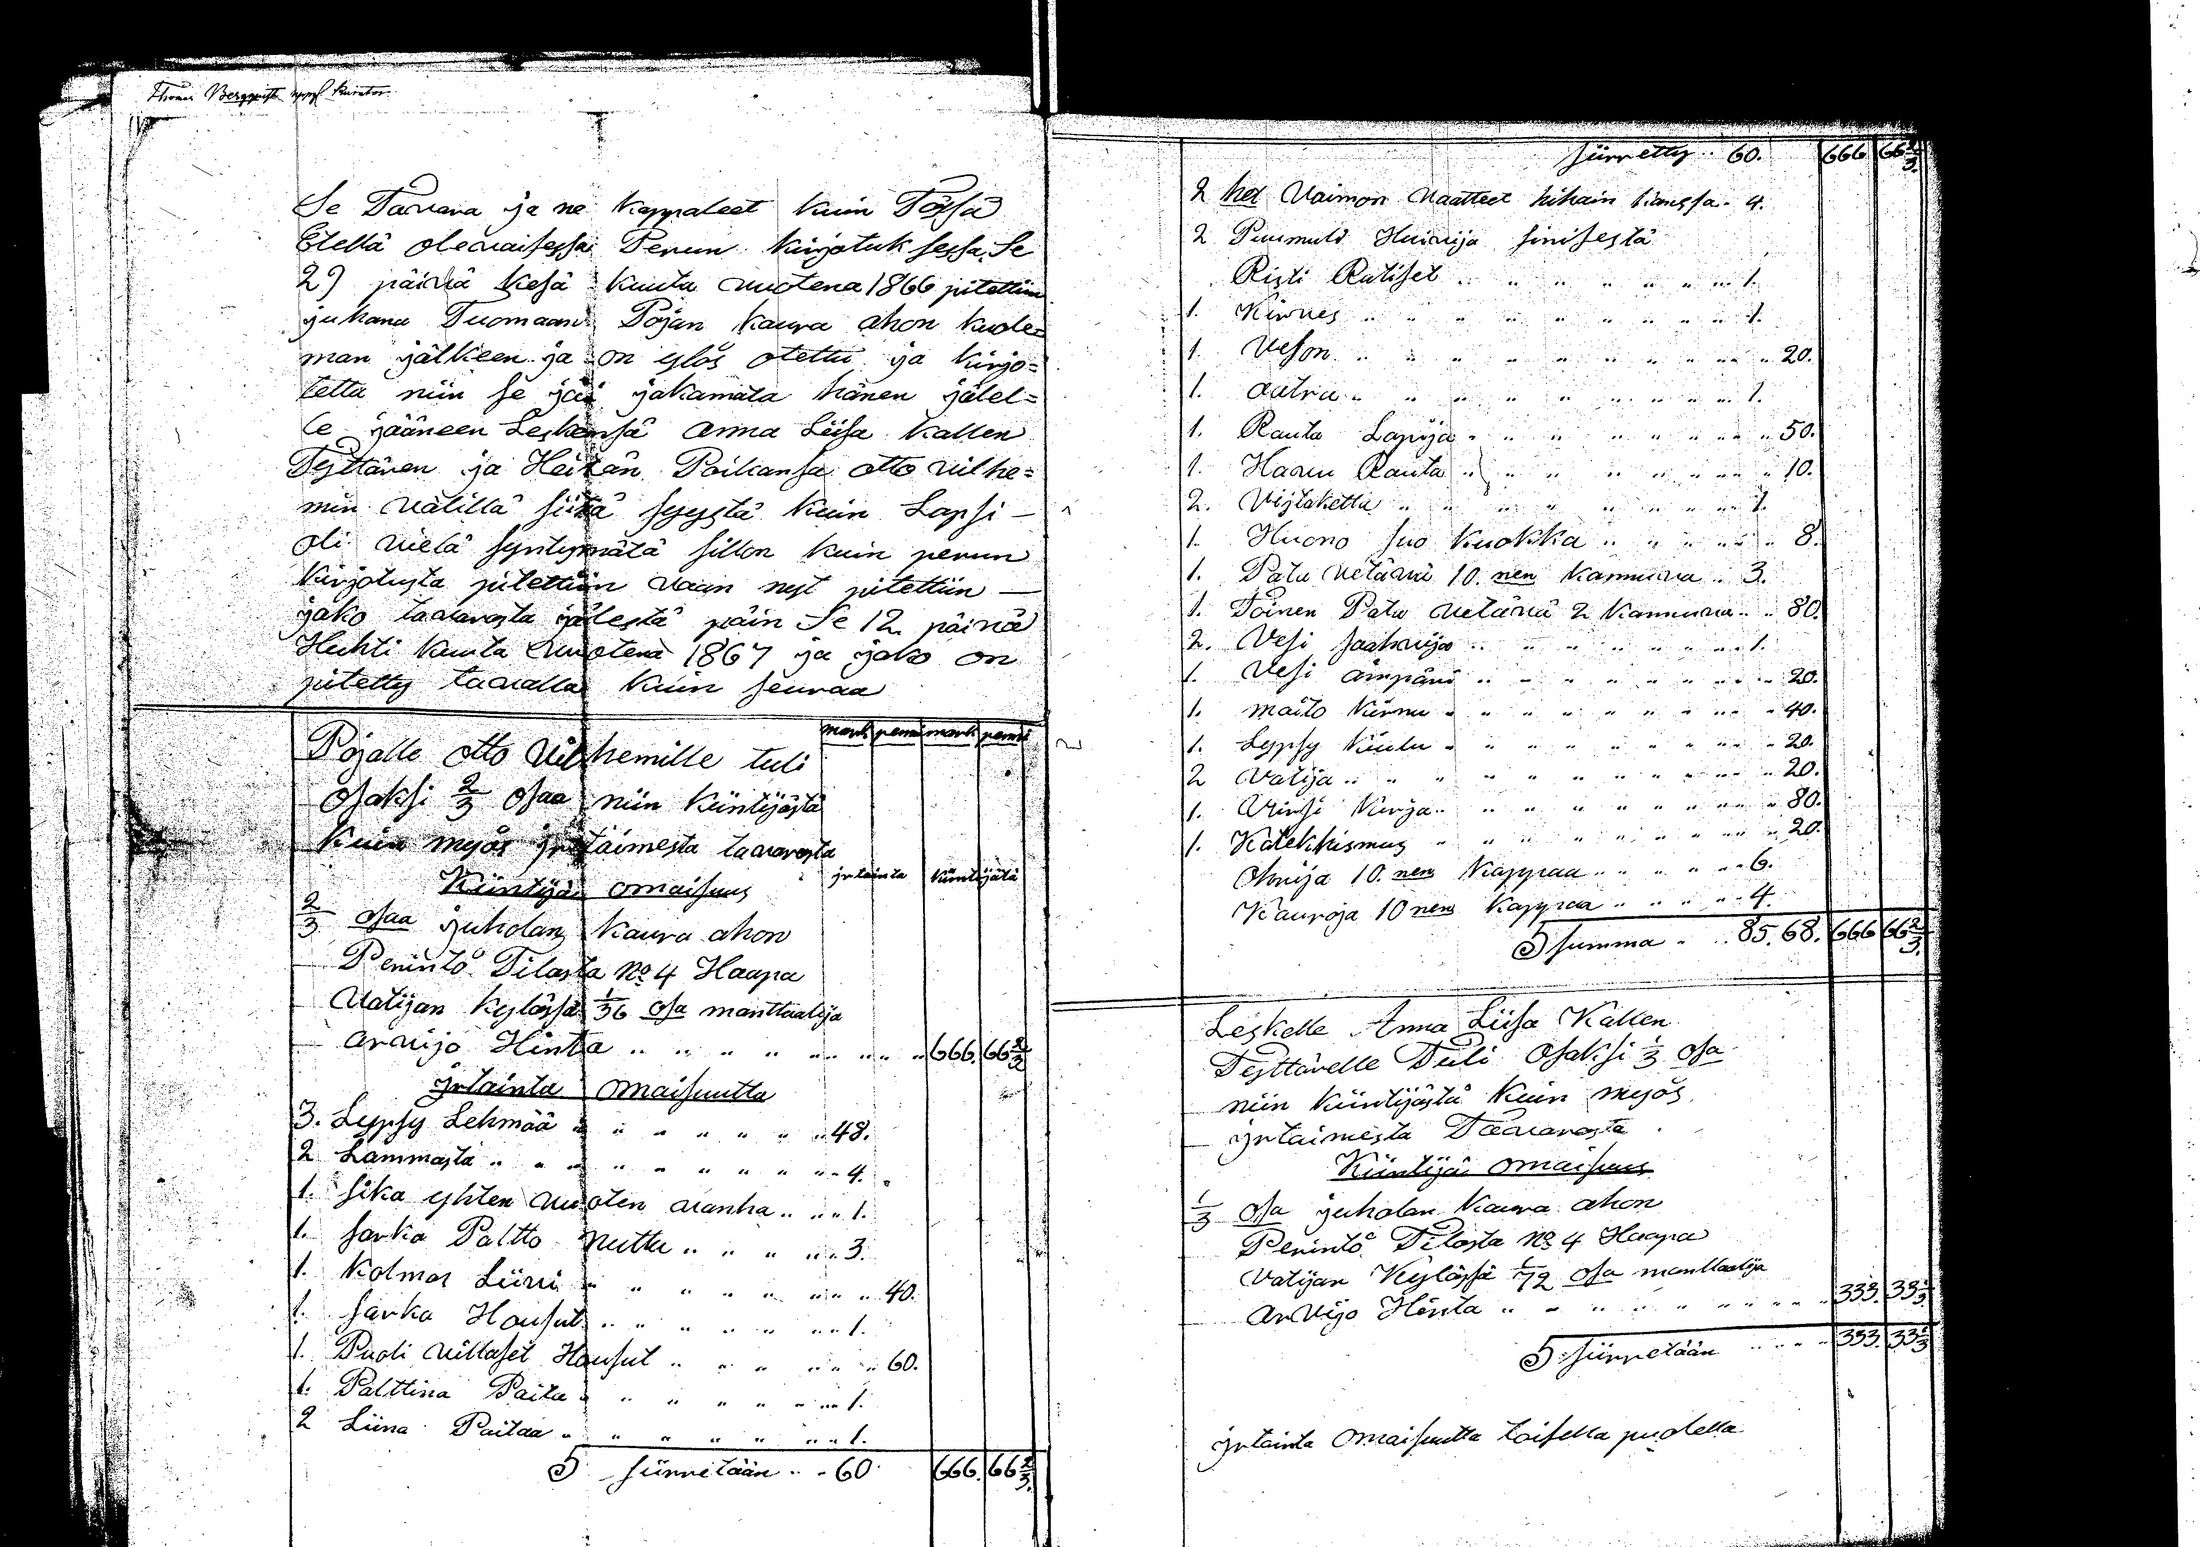 Thomas Bergqvist uppsl kurator
Se Tavara ja ne kappaleet kuin Tässä
Edellä olevaisessa Perun kirjotuksessa, Se
29 päivä kesä kuuta vuotena 1866 pitettiin
juhana Tuomaan Pojan kaura ahon kuole=
man jälkeen ja on ylös otettu ja kirjo=
tettu niin se jäi jakamata hänen jälel=
le jääneen Leskensä Anna Liisa Kallen
Tyttären ja Heitän Poikansa otto vilhe=
min välillä siitä syystä kuin Lapsi —
oli vielä syntymätä sillon kuin perun
kirjotusta pitettiin vaan nyt pitettiin —
jako taavarasta jälestä päin Se 12 päivä
Huhti kuuta vuotena 1867 ja jako on
pitetty taavalla kuin seuraa
mark penni mark penni
Pojalle otto vilhemille tuli
osaksi 2/3 osaa niin kiintijästä
kuin myös jrtaimesta taavarasta
jrtainta kiintijätä
Kiintijä omaisuus
2/3 osaa juholan kaura ahon
Perintö Tilasta No 4 Haapa
vatijan kylässä 1/36 osa manttaalija
arvijo Hinta 666. 66 2/3
jrtainta omaisuutta
3. Lypsy Lehmää 48.
2 Lammasta 4.
1. sika yhten vuoten vanha 1.
1. sarka Paltto nuttu 3.
1. Kolmas Liivi 40.
1. sarka Housut 1.
1. Puoli villaset Housut 60.
1. Palttina Paita 1.
2 Liina Paitaa 1.
S siirretään 60 666. 66 2/3
siirretty 60. 666 66 2/3
2 het Vaimon vaatteet hihain kanssa 4.
2 Puumuld Huivija sinisestä
Risti Ratiset 1.
1. Kirves 1.
1. Veson 20.
1. aatra 1.
1. Rauta Lapija 50.
1. Harvu Rauta 10.
2. Vijtaketta 1.
1. Huono suo kuokka 8.
1. Pata vetävä 10.nen kannuva 3.
1. Toinen Pata vetävä 2 kannuva 80.
2. Vesi saahvija 1.
1. Vesi ämpäri 20.
1. maito kirnu 40.
1. Lypsy kiulu 20.
2 vatija 20.
1. virsi kirja 80.
1. Katekhismus 20.
Ohrija 10.nen kappaa 6.
Kauroja 10nen kappaa 4.
S summa 85.68. 666 66 2/3
Leskelle Anna Liisa Kallen
Tyttärelle Tuli osaksi 1/3 osa
niin kiintijästä kuin myös
jrtaimesta Taavarasta
Kiintijä omaisuus
1/3 osa juholan kaura ahon
Perintö Tilasta No 4 Haapa
vatijan kylässä 1/72 osa manttaalija
arvijo Hinta 333. 33 1/3
S siirretään 333. 33 1/3
jrtainta omaisuutta toisella puolella